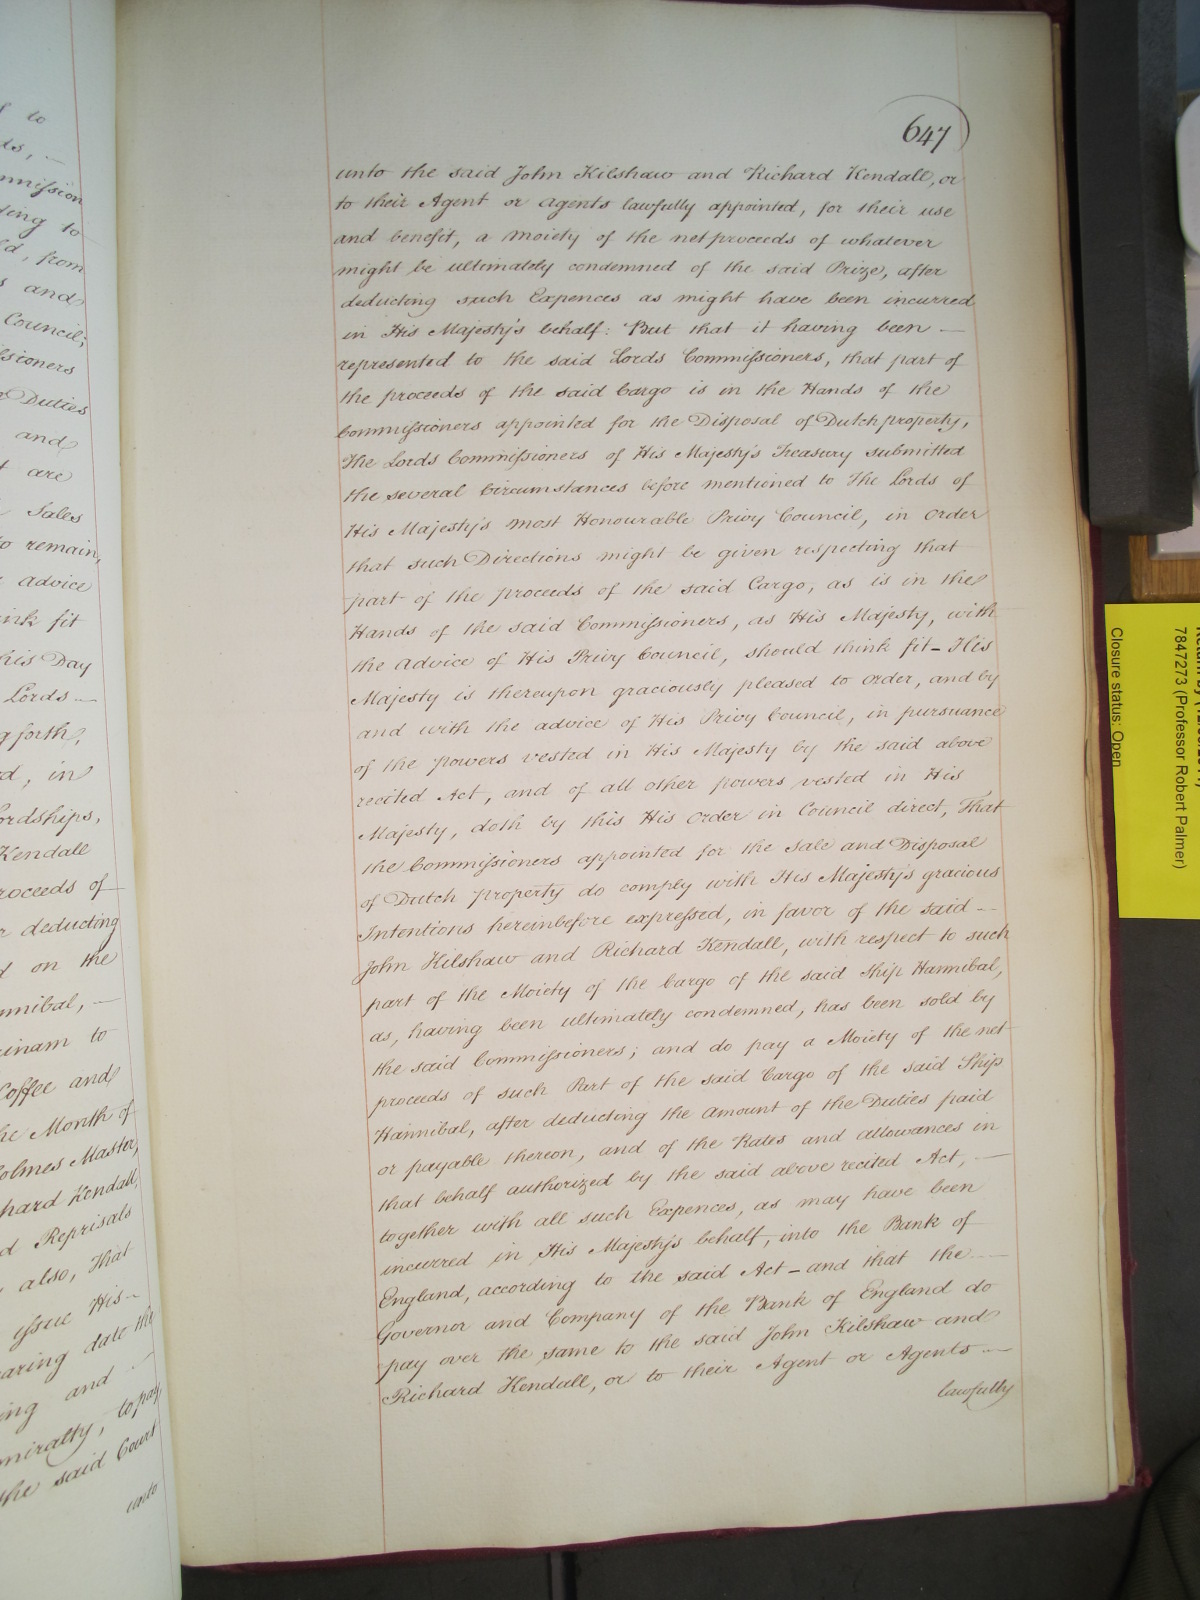 l to
ds, —
mmission
ding to
ld, from
s and
Council;
issioners
Duties
and
t are
Sales
to remain,
advice
ink fit
his Day
Lords —
g forth,
d, in
ordships,
Kendall
roceeds of
r deducting
d on the
nnibal, —
rinam to
Coffee and
he Month of
Holmes Master,
hard Kendall,
d Reprisals
also, That
issue His —
earing date the
ing and —
miralty, to pay
the said Court
unto
647
unto the said John Kilshaw and Richard Kendall, or
to their Agent or Agents lawfully appointed, for their use
and benefit, a Moiety of the net proceeds of whatever
might be ultimately condemned of the said Prize, after
deducting such Expences as might have been incurred
in His Majesty's behalf: But that it having been —
represented to the said Lords Commissioners, that part of
the proceeds of the said Cargo is in the Hands of the
Commissioners appointed for the Disposal of Dutch property,
The Lords Commissioners of His Majesty's Treasury submitted
the several Circumstances before mentioned to The Lords of
His Majesty's most Honourable Privy Council, in order
that such Directions might be given respecting that
part of the proceeds of the said Cargo, as is in the
Hands of the said Commissioners, as His Majesty, with
the advice of His Privy Council, should think fit – His
Majesty is thereupon graciously pleased to order, and by
and with the advice of His Privy Council, in pursuance
of the powers vested in His Majesty by the said above
recited Act, and of all other powers vested in His
Majesty, doth by this His Order in Council direct, That
the Commissioners appointed for the Sale and Disposal
of Dutch property do comply with His Majesty's gracious
Intentions hereinbefore expressed, in favor of the said —
John Kilshaw and Richard Kendall, with respect to such
part of the Moiety of the Cargo of the said Ship Hannibal,
as, having been ultimately condemned, has been sold by
the said Commissioners; and do pay a Moiety of the net
proceeds of such Part of the said Cargo of the said Ship
Hannibal, after deducting the amount of the Duties paid
or payable thereon, and of the Rates and allowances in
that behalf authorized by the said above recited Act, —
together with all such Expences, as may have been
incurred in His Majesty's behalf, into the Bank of
England, according to the said Act – and that the —
Governor and Company of the Bank of England do
pay over the same to the said John Kilshaw and
Richard Kendall, or to their Agent or Agents —
lawfully
7847273 (Professor Robert Palmer)
Closure status: Open